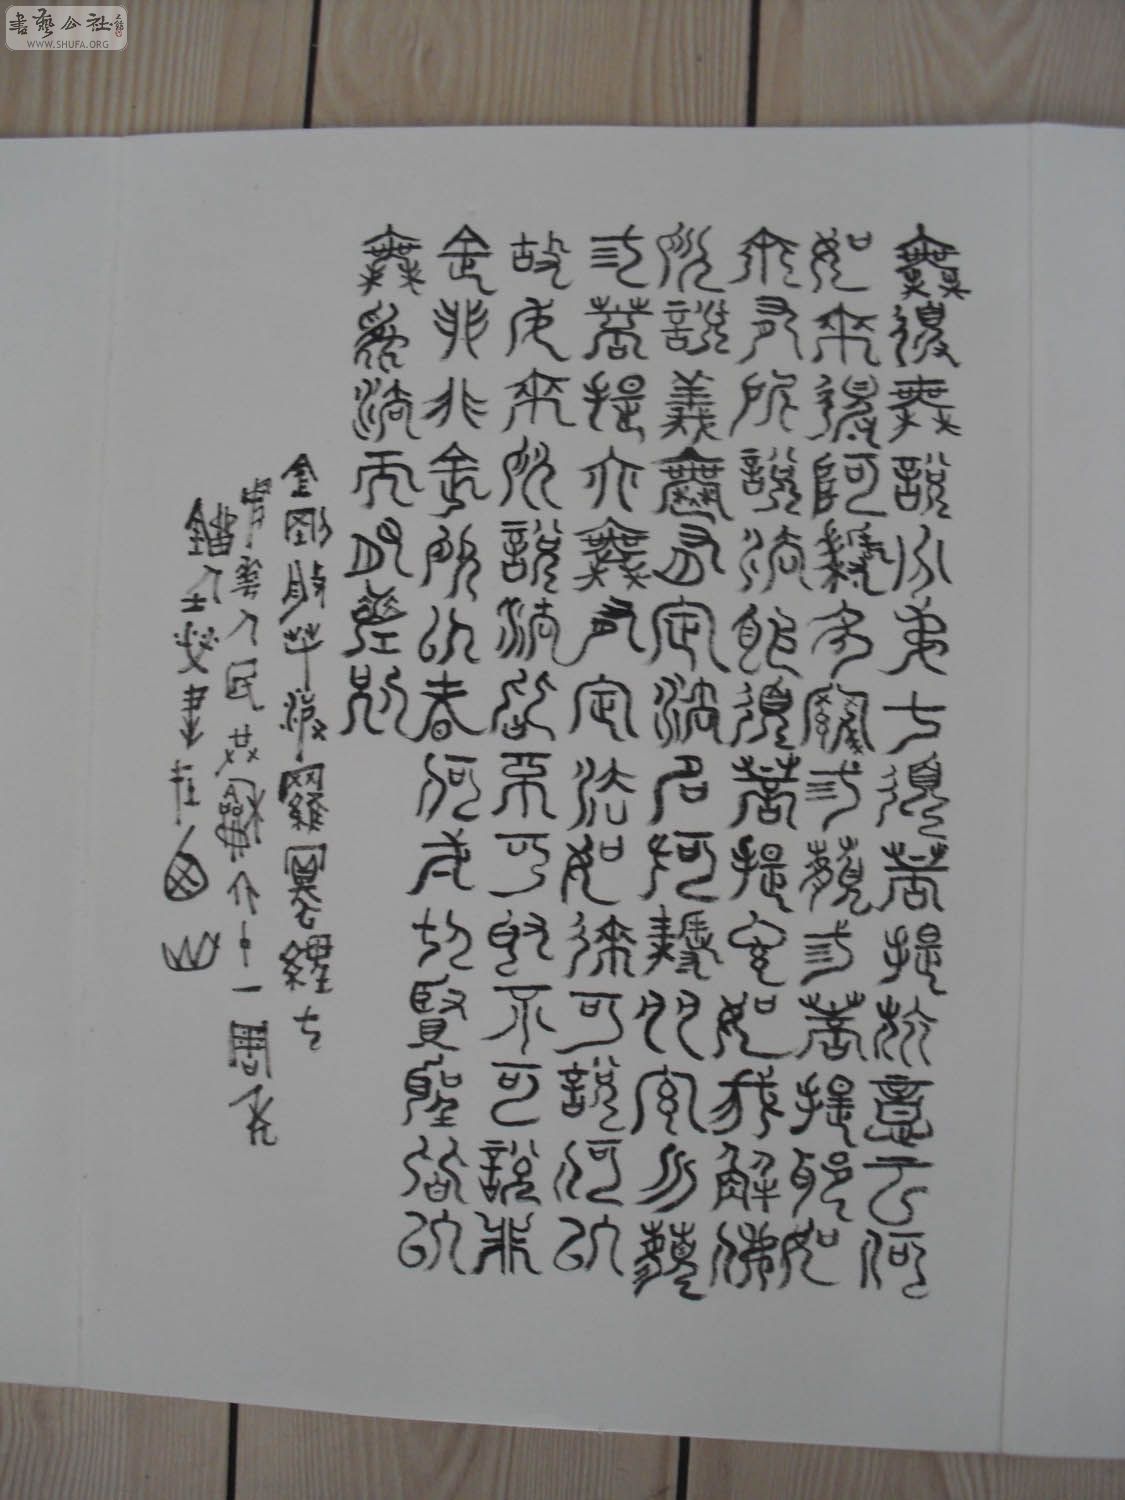 書藝公社
WWW.SHUFA.ORG
無得無說分第七須菩提於意云何
如來得阿耨多羅三藐三菩提耶如
來有所說法耶須菩提言如我解佛
所說義無有定法名阿耨多羅三藐
三菩提亦無有定法如來可說何以
故如來所說法皆不可取不可說非
法非非法所以者何一切賢聖皆以
無為法而有差別
金剛般若波羅蜜經七
人民共和國六十一周年
書
山